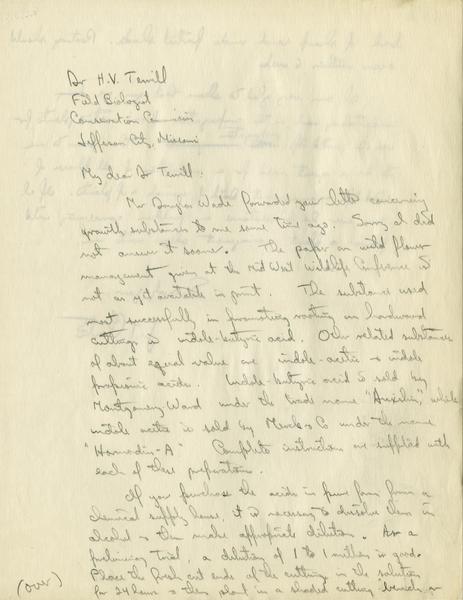 Dr H.V. Terrill
Field Biologist
Conservation Commission
Jefferson City, Missouri
My dear Dr Terrill:
Mr Douglas Wade forwarded your letter concerning
growth substances to me some time ago. Sorry I did
not answer it sooner. The paper on wild flower
management given at the Mid West Wildlife Conference is
not as yet available in print. The substance used
most successfully in promoting rooting in hardwood
cuttings is indole-butyric acid. Other related substances
of about equal value are indole-acetic & indole
propionic acids. Indole-butyric acid is sold by
Montgomery Ward under the trade name "Auxilin", while
indole acetic is sold by Merck & Co under the name
"Hormodin-A" Complete instructions are supplied with
each of these preparations.
If you purchase the acids in pure form from a
chemical supply house, it is necessary to dissolve them in
alcohol & then make appropriate dilution. As a
preliminary trial, a dilution of 1 to 1 million is good.
Place the fresh cut ends of the cuttings in the solution
for 24 hours & then plant in a shaded cutting bench or
(over)